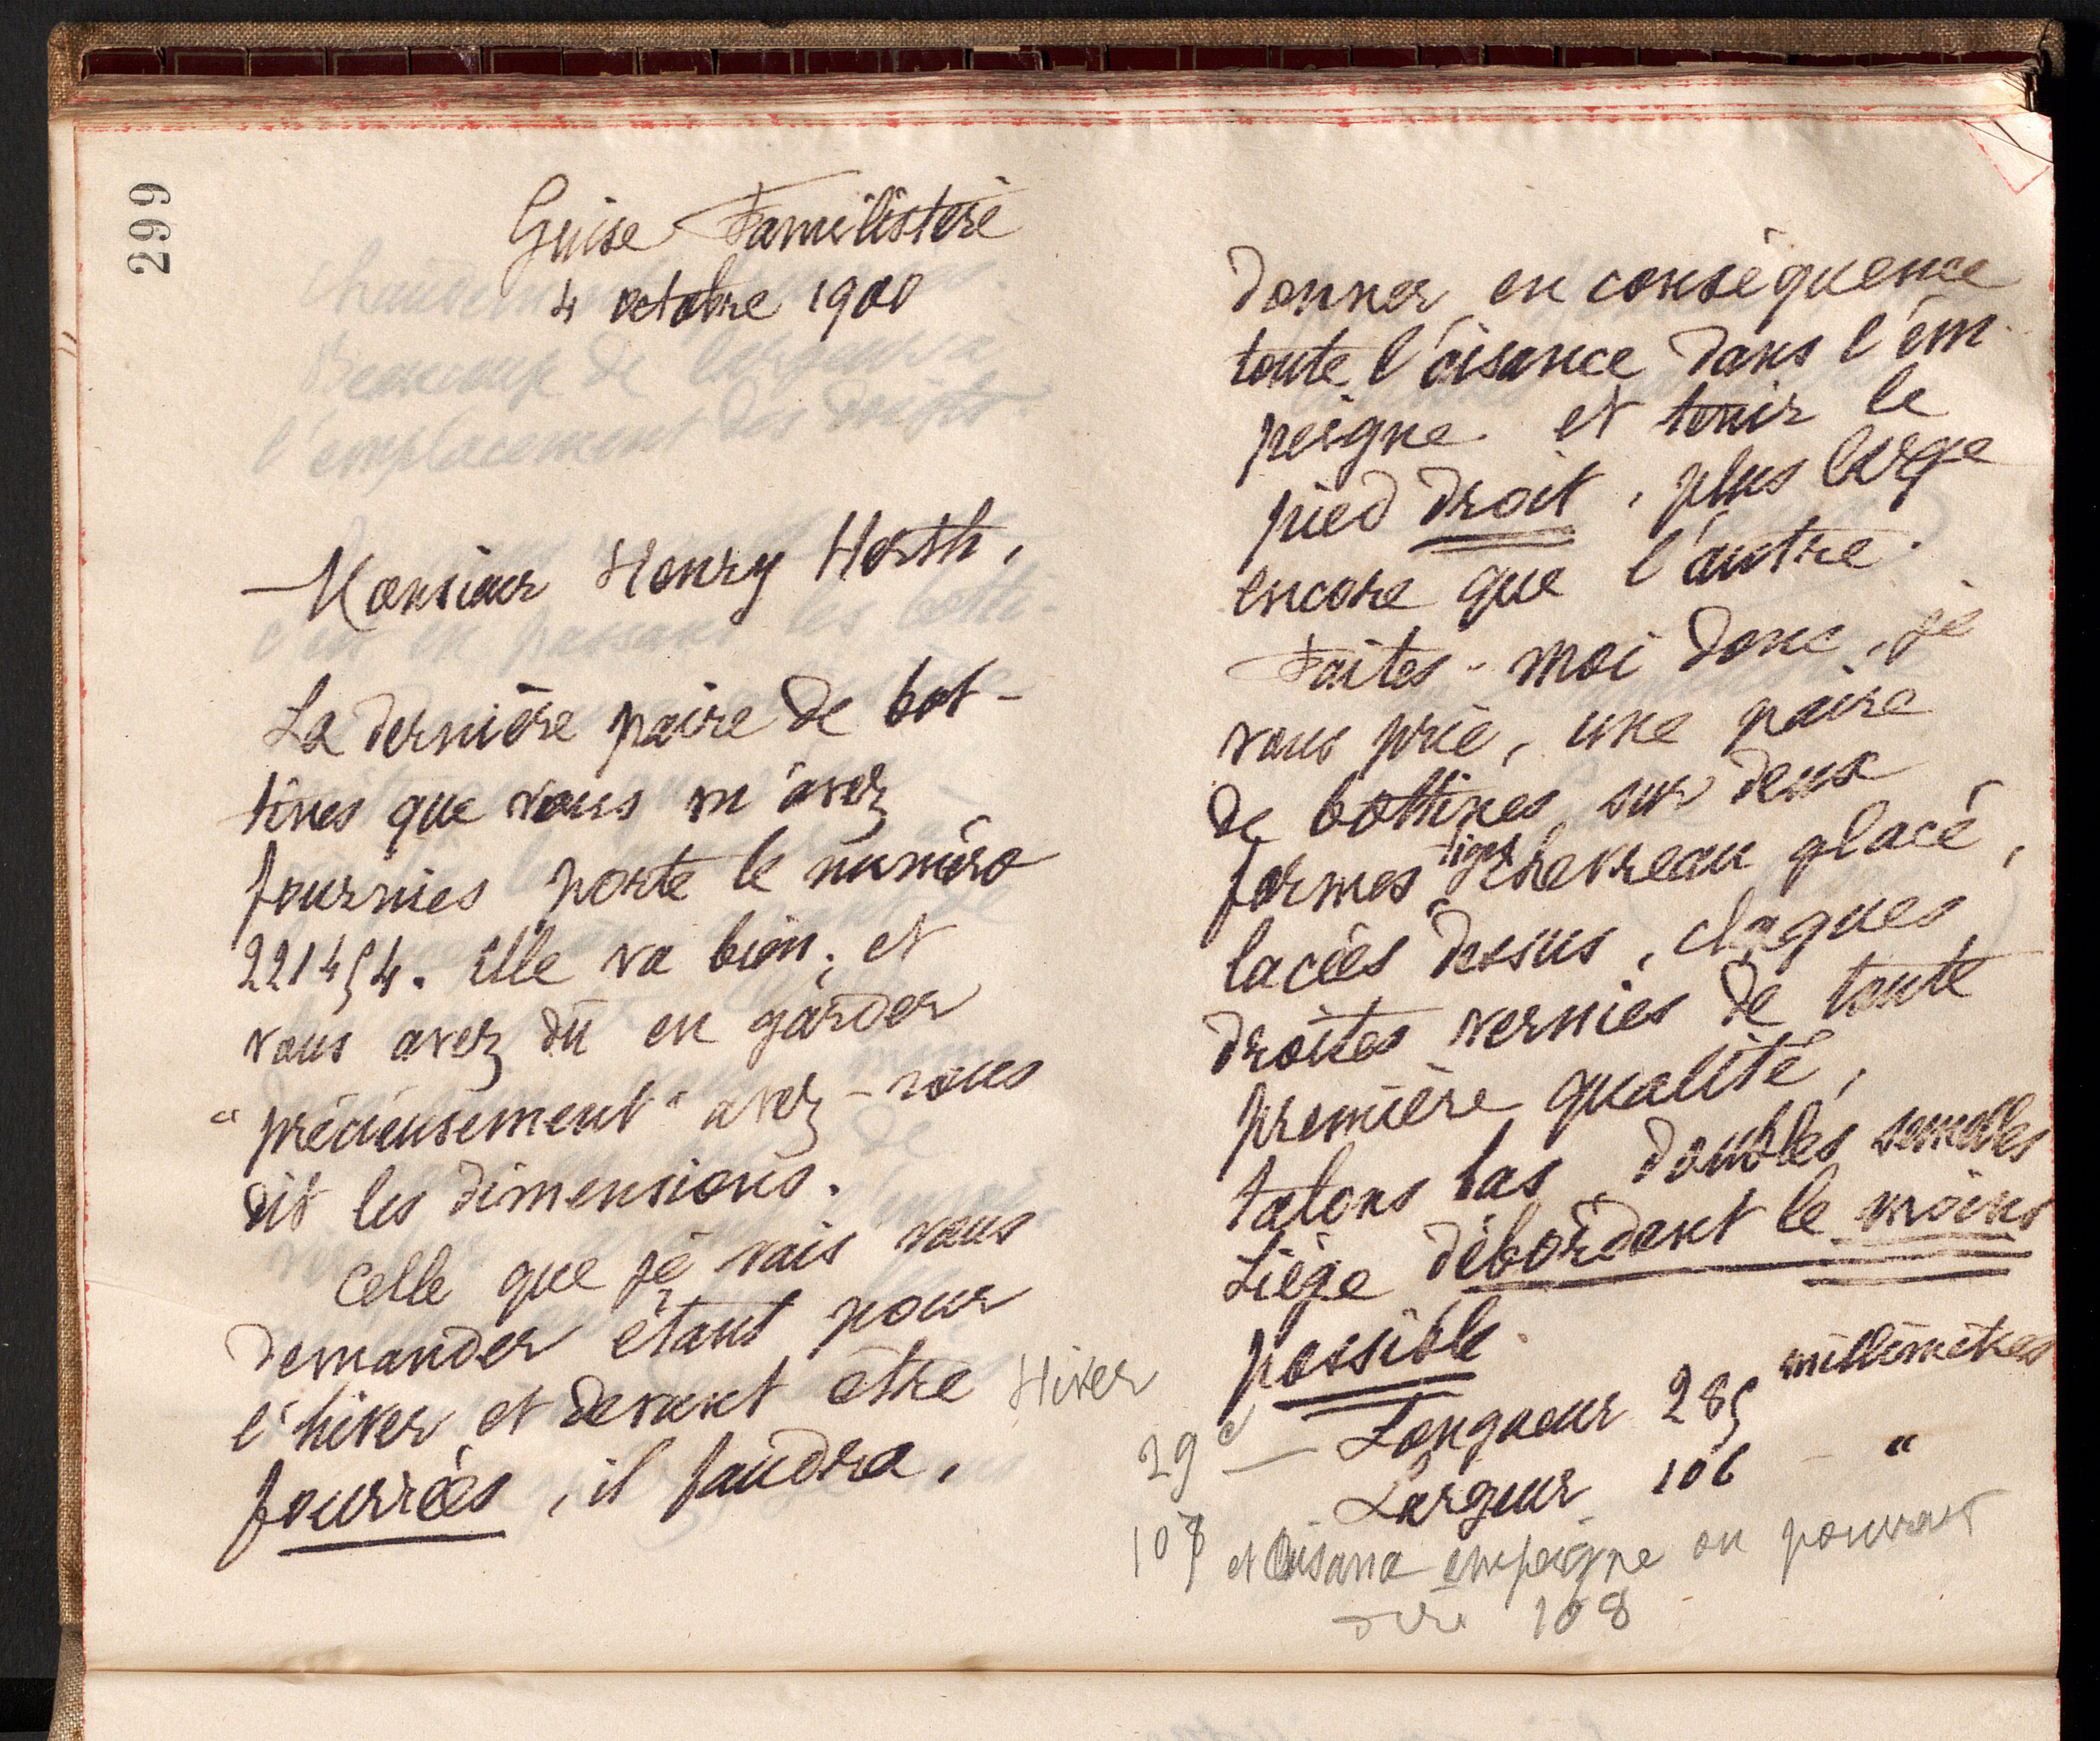 299
Guise Familistère
4 octobre 1900
Monsieur Henry Horth,
La dernière paire de bot-
tines que vous m'avez
fournies porte le numéro
221454. Elle va bien ; et
vous avez dû en garder
"précieusement" avez-vous
dit les dimensions.
Celle que je vais vous
demander étant pour
l'hiver et devant être
fourrées, il faudra,
donner en conséquence
toute l'aisance dans l'em-
peigne et tenir le
pied droit, plus large
encore que l'autre.
Faites-moi donc, je
vous prie, une paire
de bottines sur deux
formes tiges chevreau glacé,
lacées dessus, claques
droites vernies de toute
première qualité,
talons bas, doubles semelles
Liège débordant le moins
possible.
Hiver
29 c — Longueur 285 millimètres
Largeur 106 - "
et aisance empeigne on pouvait
dire 108